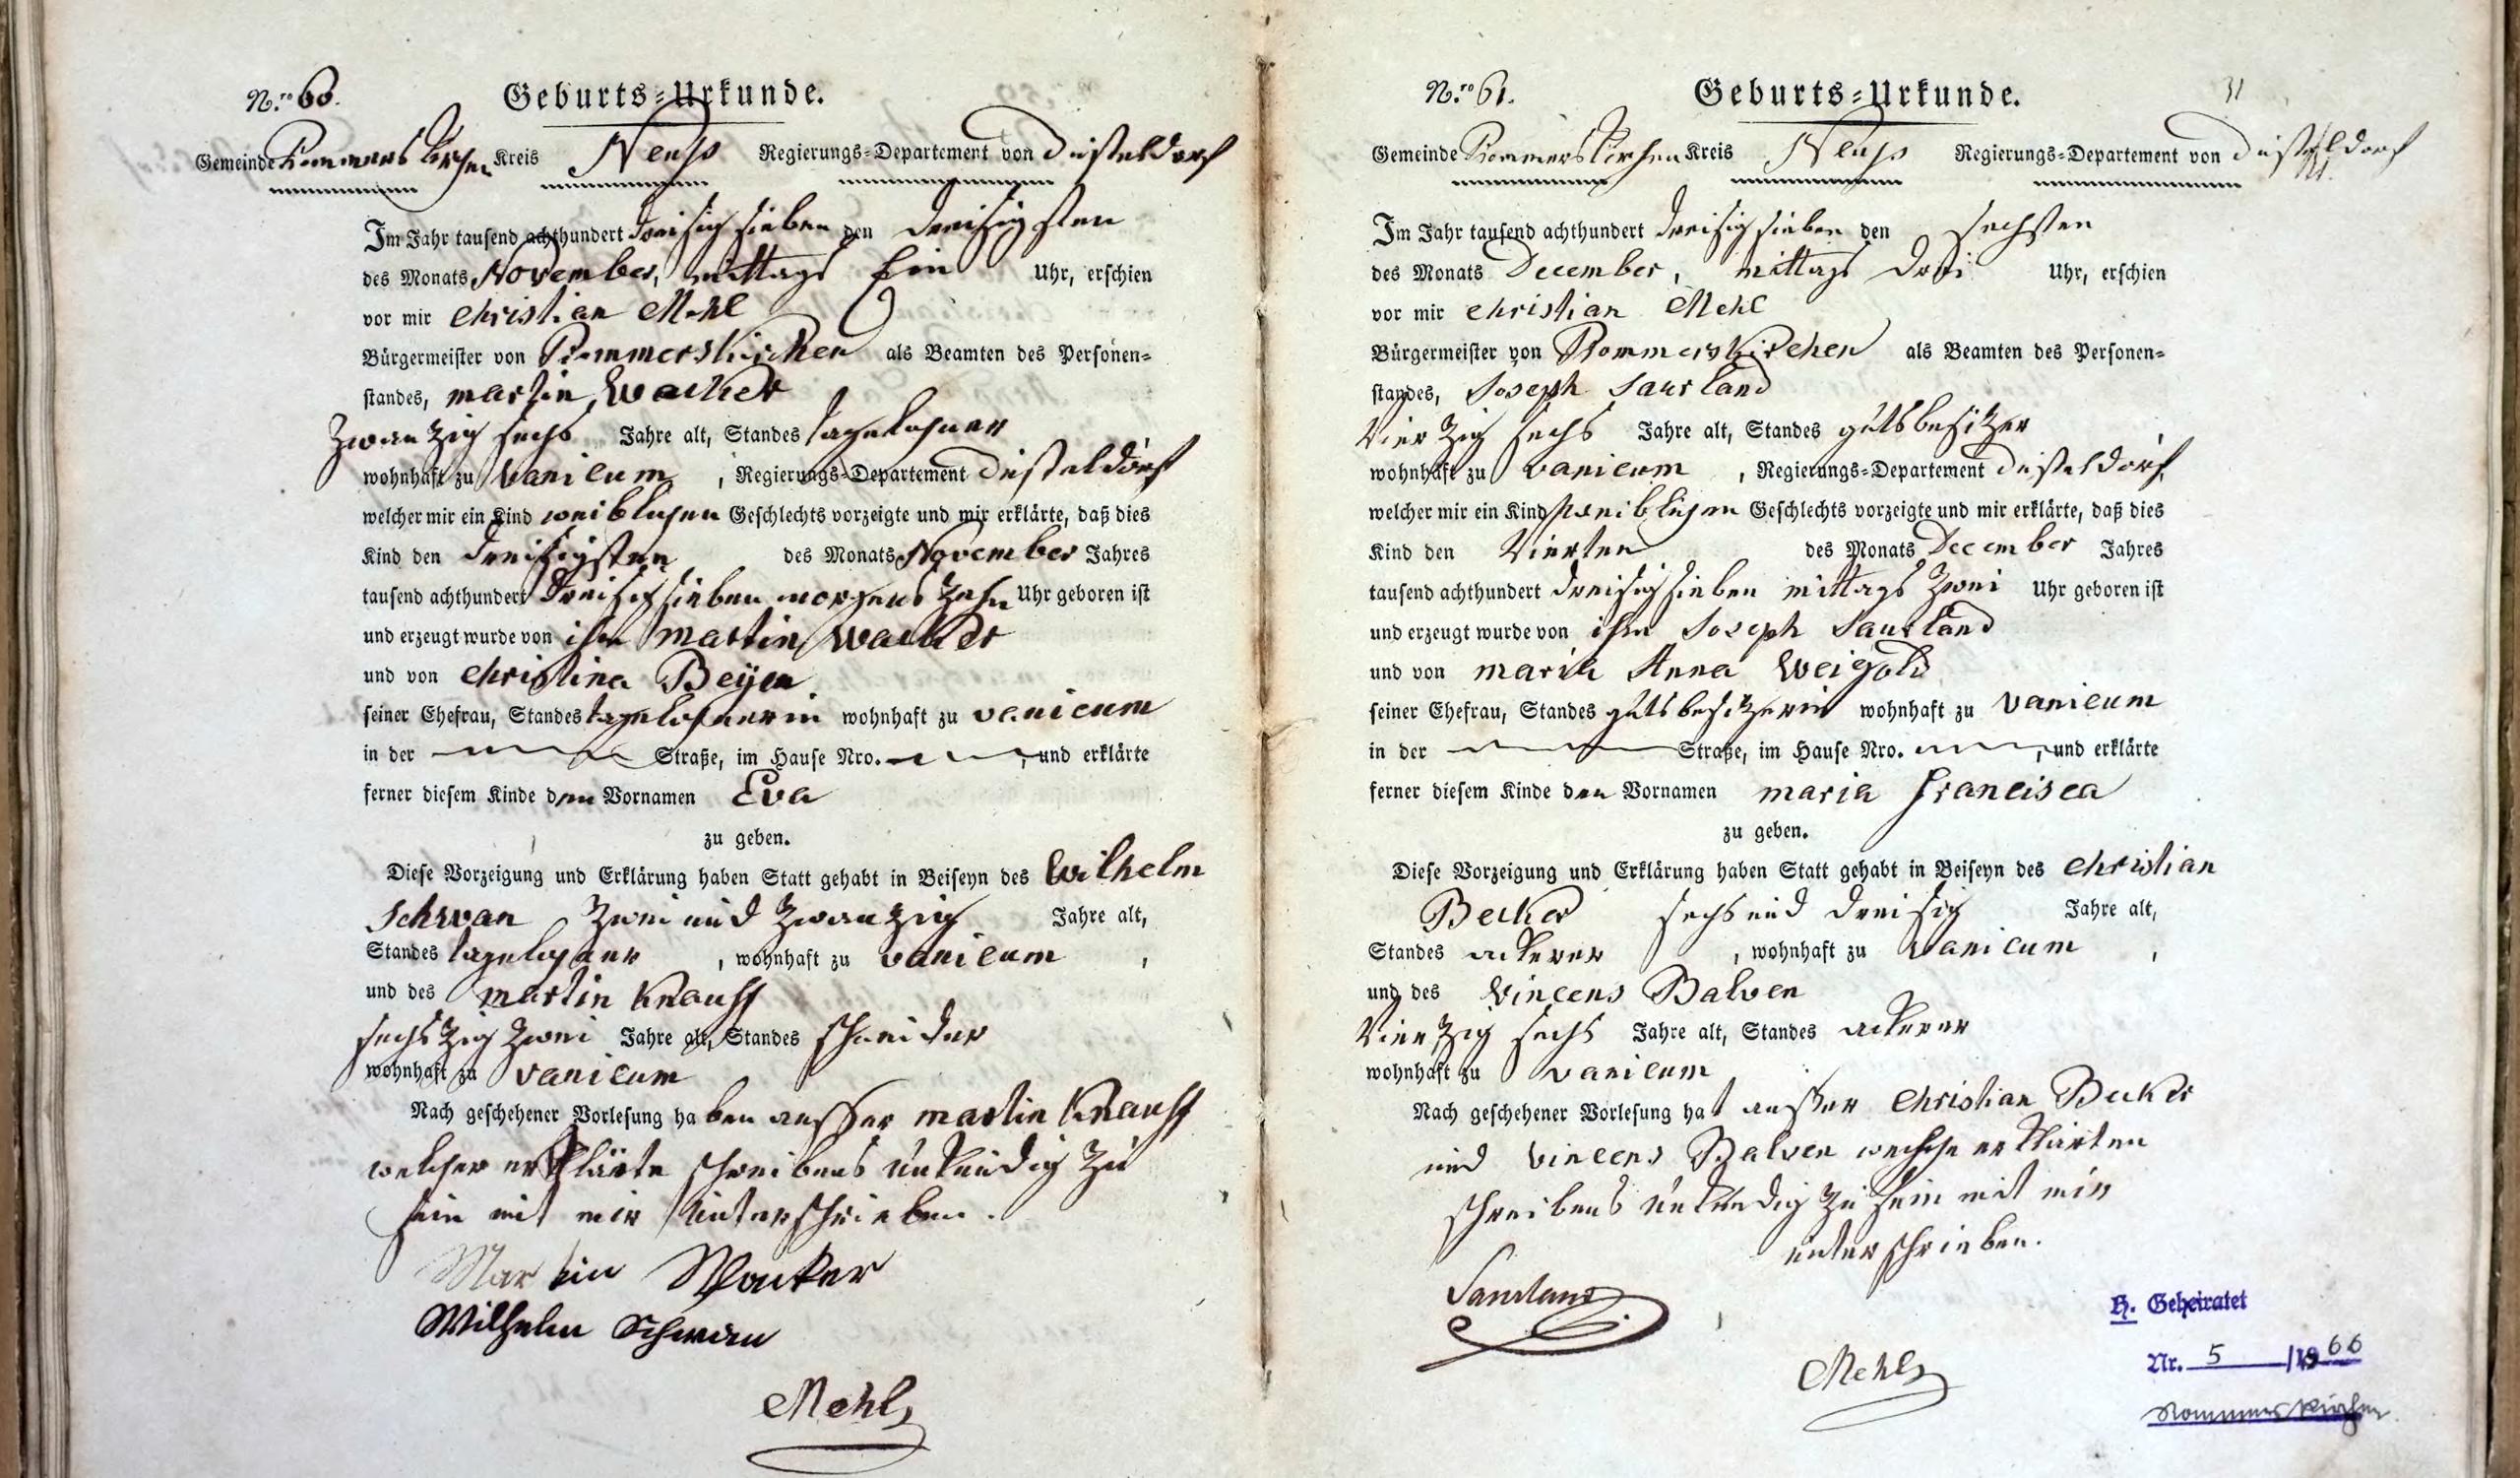 N.ro 60.
Geburts-Urkunde.
Gemeinde Rommerskirchen Kreis Neuß Regierungs-Departement von Düsseldorf
Im Jahr tausend achthundert dreisig sieben den dreisigsten
des Monats November, mittags Ein Uhr, erschien
vor mir Christian Mehl
Bürgermeister von Rommerskirchen als Beamten des Personen-
standes, Martin Wacker
zwanzig sechs Jahre alt, Standes tagelohner
wohnhaft zu Vanicum, Regierungs-Departement Düsseldorf
welcher mir ein Kind weiblichen Geschlechts vorzeigte und mir erklärte, daß dies
Kind den dreisigsten des Monats November Jahres
tausend achthundert dreisig sieben morgens zehn Uhr geboren ist
und erzeugt wurde von ihm Martin Wacker
und von Christina Beyen
seiner Ehefrau, Standes tagelohnerin wohnhaft zu Vanicum
in der Straße, im Hause Nro. , und erklärte
ferner diesem Kinde den Vornamen Eva
zu geben.
Diese Vorzeigung und Erklärung haben Statt gehabt in Beiseyn des Wilhelm
Schwan zwei und zwanzig Jahre alt,
Standes tagelohner, wohnhaft zu Vanicum,
und des Martin Knauff
sechszig zwei Jahre alt, Standes schneider
wohnhaft zu Vanicum
Nach geschehener Vorlesung haben ausser Martin Knauff
welcher erklärte schreibens unkundig zu
sein mit mir unterschrieben.
Martin Wacker
Wilhelm Schwan
Mehl
N.ro 61.
Geburts-Urkunde.
31
Gemeinde Rommerskirchen Kreis Neuß Regierungs-Departement von Düsseldorf
Im Jahr tausend achthundert dreisig sieben den sechsten
des Monats December, mittags drei Uhr, erschien
vor mir Christian Mehl
Bürgermeister von Rommerskirchen als Beamten des Personen-
standes, Joseph Saurland
vierzig sechs Jahre alt, Standes gutsbesitzer
wohnhaft zu Vanicum, Regierungs-Departement Düsseldorf,
welcher mir ein Kind weiblichen Geschlechts vorzeigte und mir erklärte, daß dies
Kind den vierten des Monats December Jahres
tausend achthundert dreisig sieben mittags zwei Uhr geboren ist
und erzeugt wurde von ihm Joseph Saurland
und von Maria Anna Weigold
seiner Ehefrau, Standes gutsbesitzerin wohnhaft zu Vanicum
in der Straße, im Hause Nro. , und erklärte
ferner diesem Kinde den Vornamen Maria Francisca
zu geben.
Diese Vorzeigung und Erklärung haben Statt gehabt in Beiseyn des Christian
Becker sechs und dreisig Jahre alt,
Standes ackerer, wohnhaft zu Vanicum,
und des Vincens Balven
vierzig sechs Jahre alt, Standes ackerer
wohnhaft zu Vanicum
Nach geschehener Vorlesung hat ausser Christian Becker
und Vincens Balven welche erklärten
schreibens unkundig zu sein mit mir
unterschrieben.
Saurland
Mehl
H. Geheiratet
Nr. 5 /1966
Rommerskirchen